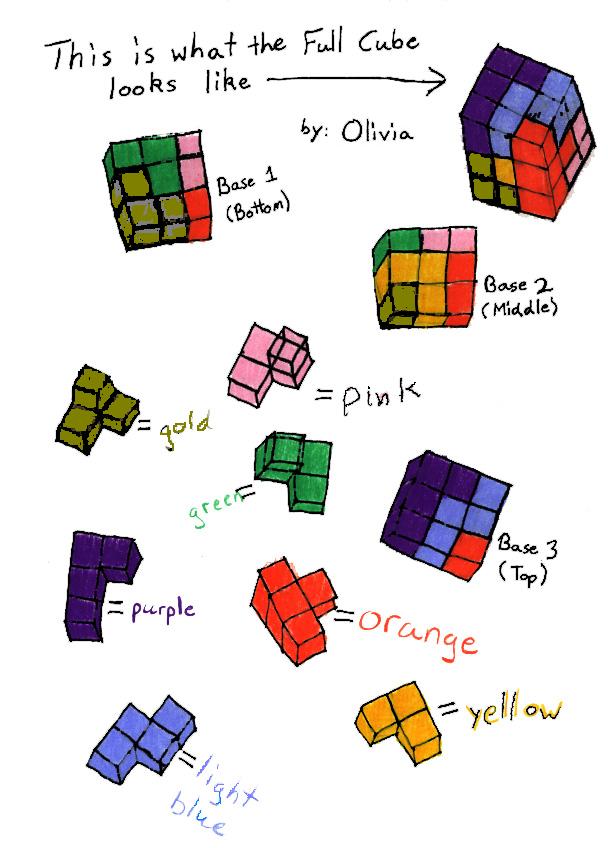 This is what the Full Cube
looks like
by: Olivia
Base 1
(Bottom)
Base 2
(Middle)
= pink
= gold
green=
Base 3
(Top)
= purple
= orange
= yellow
= light
blue